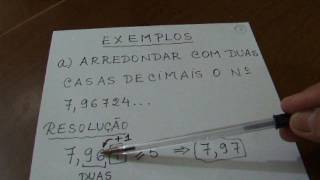 EXEMPLOS
a) ARREDONDAR COM DUAS
CASAS DECIMAIS O Nº
7,96724...
RESOLUÇÃO
+1
7,96 ≥ 5 ⇒ 7,97
DUAS